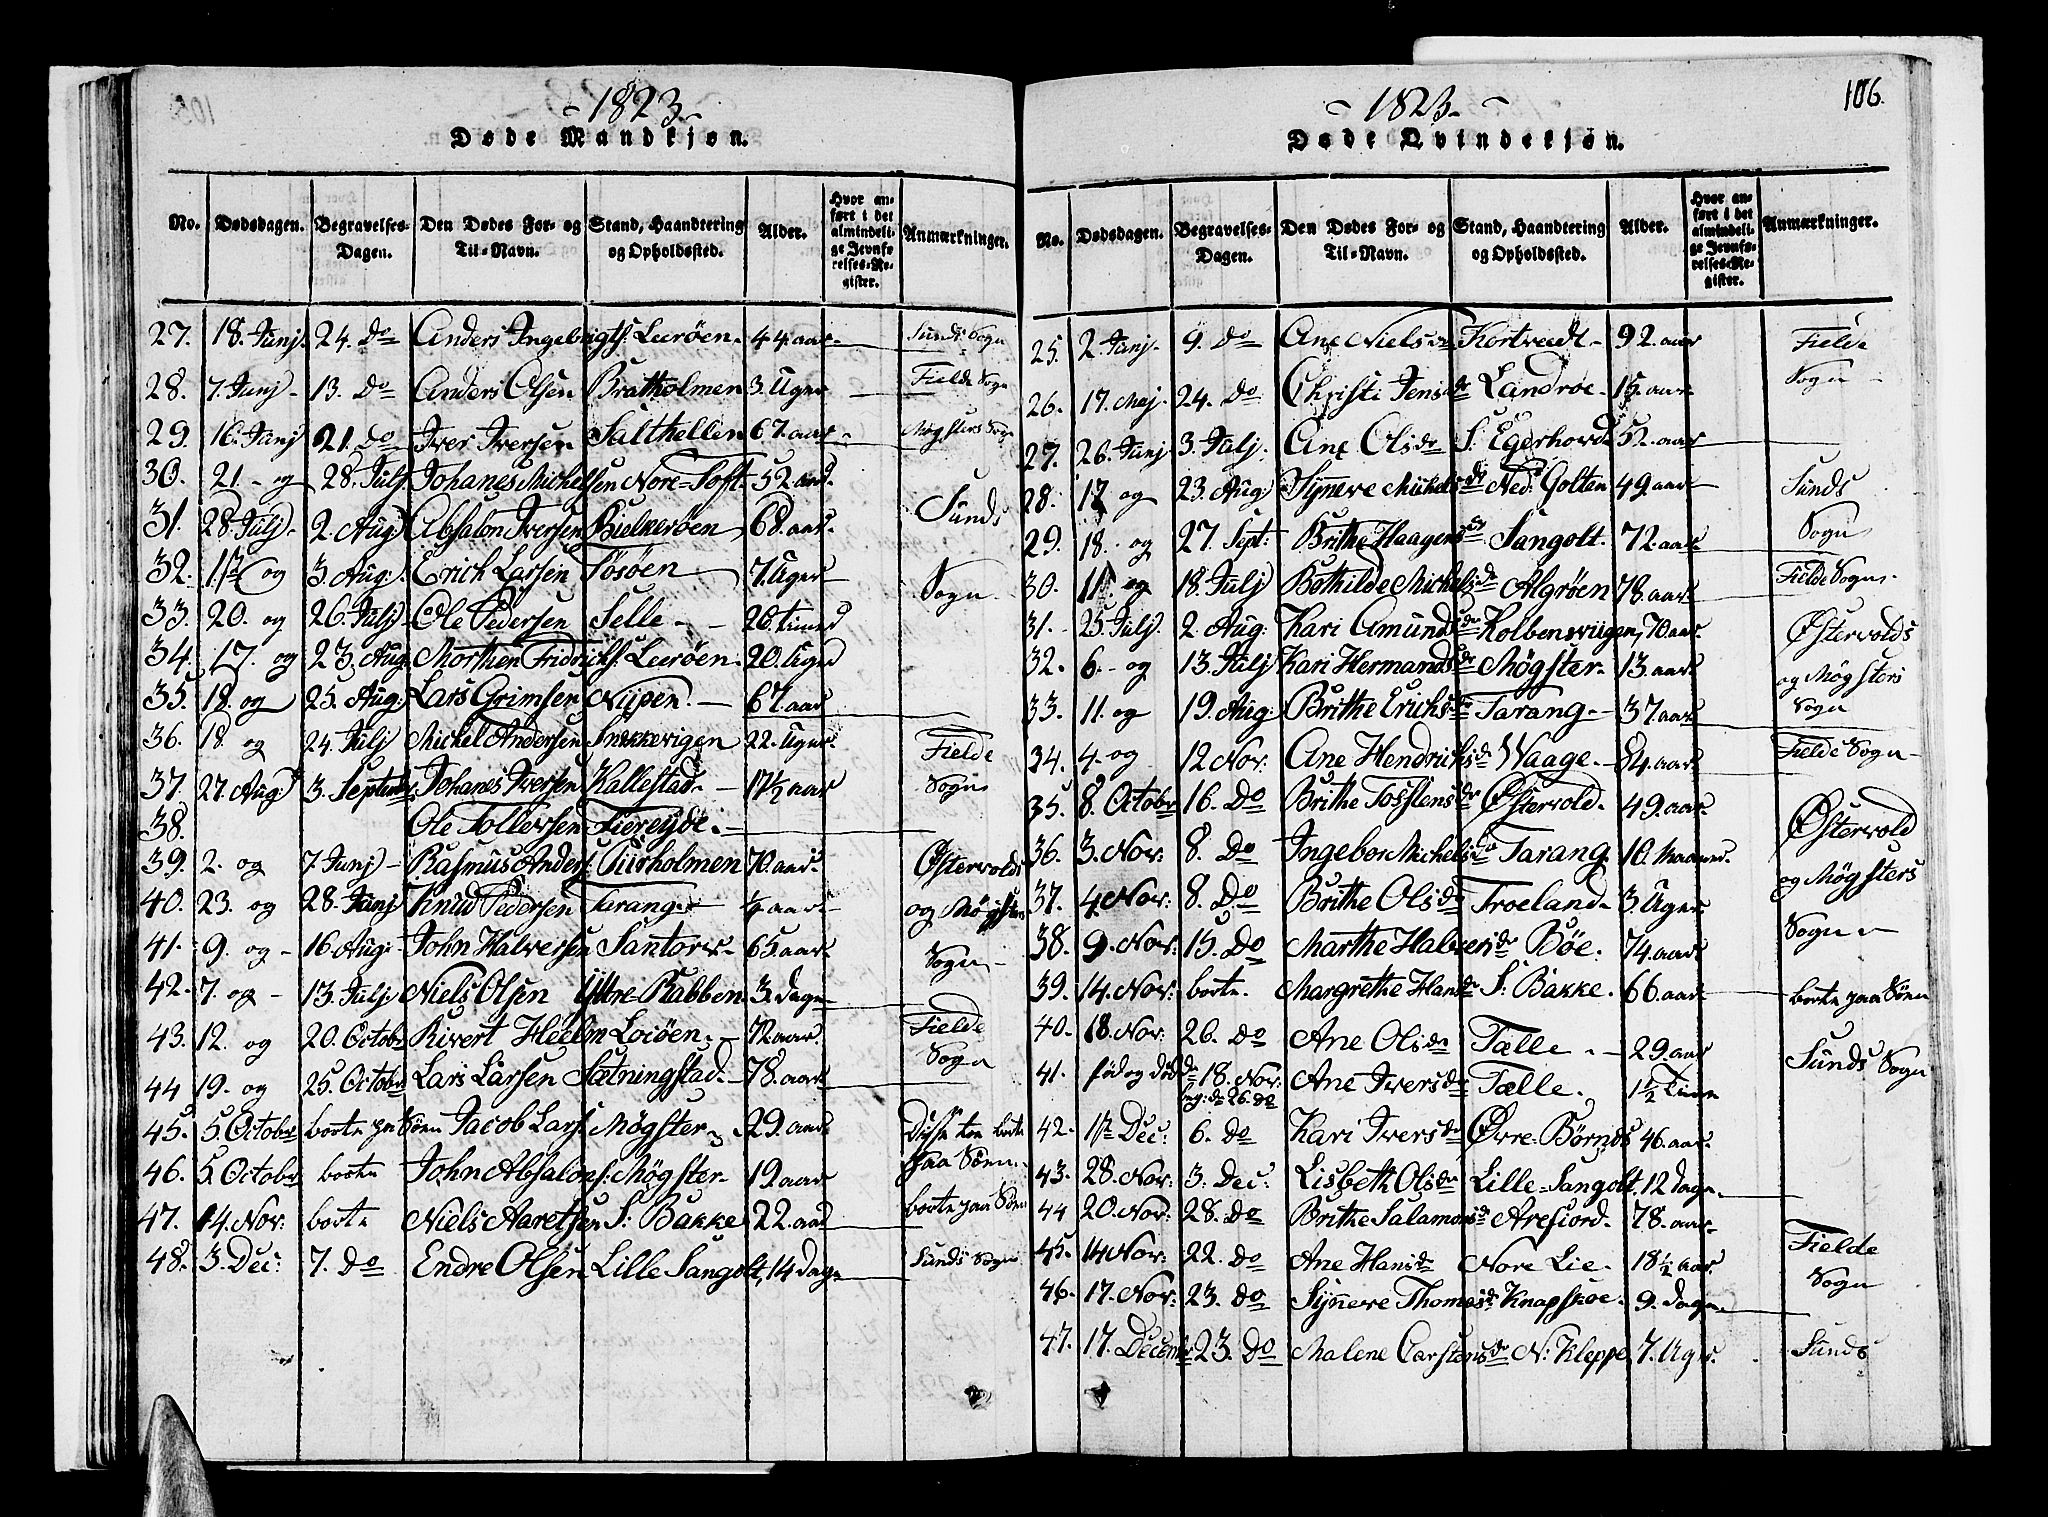 - 1823 -
Døde Mandkjøn.
No. Dødsdagen. Begravelses-Dagen. Den Dødes For- og Til-Navn. Stand, Haandtering og Opholdssted. Alder. Hvor anført i det almindelige Jevnførelses-Register. Anmærkninger.
27. 18. Junj. 24. Do Anders Ingebrigts. Leeröen. 44. aar Sunds Sogn
28. 7. Junj 13. Do Anders Olsen Bratholmen 3. Uger Fielde Sogn
29. 16. Junj 21. Do Iver Iversen Salthellen 67. aar Møgsters Sogn
30. 21. og 28. Julj Johanes Michelsen Nore-Toft 52. aar
31. 28. Julj 2. Aug Absalon Iversen Bielkerøen 68. aar Sunds
32. og 3 Aug: Erich Larsen Tösöen 7. Uger Sogn
33. 20. og 26. Julj Ole Pedersen Selle 26. timer
34. 17. og 23. Aug Morthen Fridrichs. Leeröen. 20. Uger
35. 18. og 25. Aug: Lars Grimsen Nipen. 67. aar
36. 18. og 24. Julj Michel Andersen Snekkevigen 22. Uger Fielde
37. 27. Aug 3. Septembr Johanes Iversen Kallestad 17½ aar Sogn
38. Ole Tollefsen Fiereyde.
39. 2. og 7 Junj Rasmus Anders. Tuirholmen 70. aar Østervolds
40. 23. og 28. Junj Knud Pedersen Tarang ¼ aar og Møgsters
41. 9. og 16. Aug: John Halversen Santorv 65. aar Sogn
42. 7. og 13. Julj Niels Olsen Yttre-Rabben 3. dage
43. 12. og 20. Octobr Rivert Heelm Loiöen 72. aar Fielde
44 19. og 25. Octobr Lars Larsen Sætningstad 78. aar Sogn
45. 5. Octobr borte paa Söen Jacob Lars. Møgster 29. aar Disse toe borte
46. 5. Octobr borte John Absalons. Møgster 19 aar paa Söen
47. 14. Nov: borte Niels Aaretsen S: Bakke 22. aar borte paa Söen
48. 3. Dec: 7. Do Endre Olsen Lille Sangolt, 14 dage Sunds Sogn
106.
- 1823 -
Døde Qvindekjøn.
No. Dødsdagen. Begravelses-Dagen. Den Dødes For- og Til-Navn. Stand, Haandtering og Opholdssted. Alder. Hvor anført i det almindelige Jevnførelses-Register. Anmærkninger.
25. 2. Junj. 9. Do Ane Nielsdr Kortvedt 92. aar Fielde
26. 17. Maj. 24. Do Christi Jensdr Landroe 15. aar Sogn
27. 26. Junj 3. Julj. Ane Olsdr S. Egerhovd 52. aar
28. 17 og 23. Aug Synneve Michelsdr Ned: Golten 49. aar Sunds
29. 18. og 27. Sept: Brithe Haagensdr Sangolt. 72. aar Sogn
30. 11. og 18. Julj Bothilde Michelsdr Algröen 78. aar Fielde Sogn
31. 25. Julj. 2. Aug: Kari Amundsdr Kolbensviigen, 70. aar Østervolds
32. 6. og 13. Julj Kari Hermandsdr Møgster 13. aar og Møgsters
33. 11. og 19. Aug: Brithe Erichsdr Tarang 37. aar Sogn
34. 4. og 12 Nov: Ane Hendrichsdr Waage 84. aar Fielde Sogn
35. 8. Octobr 16. Do Brithe Tosstensdr Østervold. 49. aar Østervold
36. 3. Nov: 8. Do Ingebor Michelsdr Tarang 10. Maaned og Møgsters
37. 4. Nov: 8. Do Brithe Olsdr Troeland 3. Uger Sogn
38. 9. Nov: 15. Do Marthe Halversdr Böe. 74. aar
39. 14. Nov: borte. Margrethe Hansdr S: Bakke. 66. aar borte paa Söen
40. 18. Nov: 26. Do Ane Olsdr Tælle. 29. aar Sunds Sogn
41. föd og död d 18. Nov: beg: d 26. do Ane Iversdr Tælle. 1½ Time
42. 1ste Dec: 6. Do Kari Iversdr Øvre-Börnes 46. aar
43. 28. Nov: 3. Dec: Lisbeth Olsdr Lille-Sangolt. 12 dage
44 20. Nov: 28. Do Brithe Salamonsdr Arefiord. 78. aar
45. 14 Nov: 22. Do Ane Hansdr Nore Lie 18½ aar. Fielde
46. 17. Nov: 23. Do Synneve Thomasdr Knapskoe 9. dage Sogn
47. 17. December 23. Do Malene Carstensdr N: Kleppe, 7. Uger. Sunds